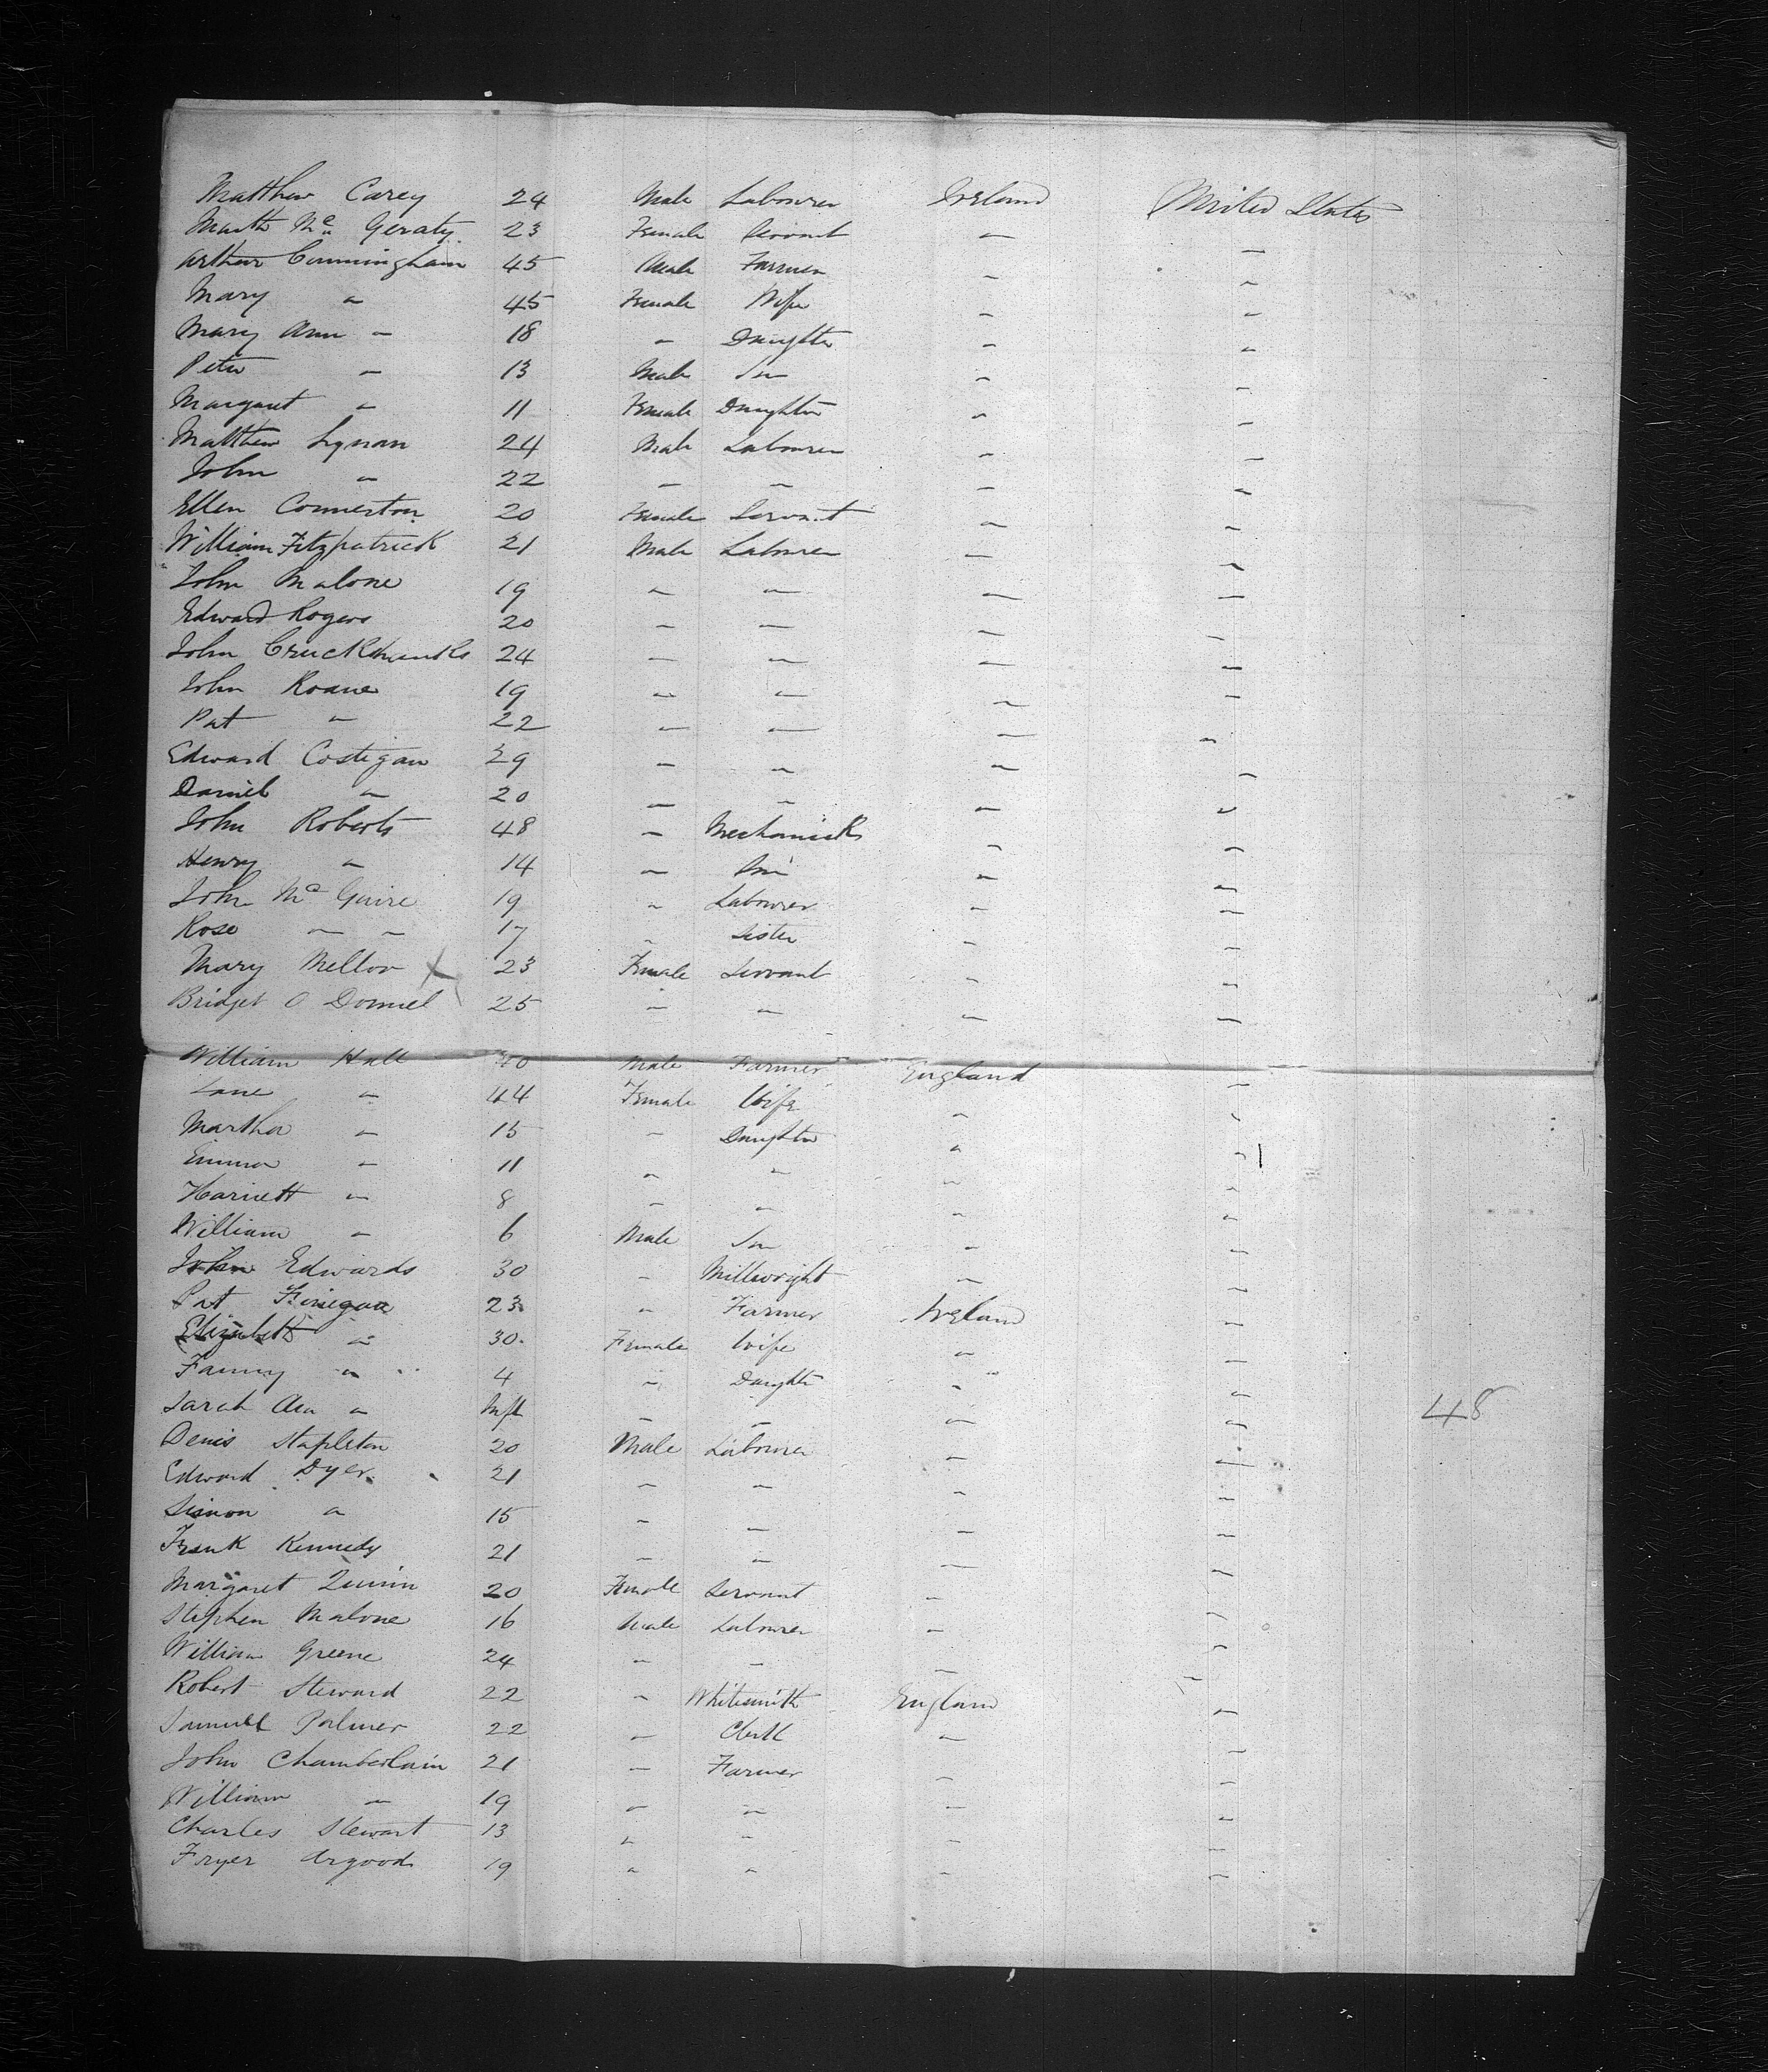 Matthew Carey 24 Male Labourer Ireland United States
Marth Mc Geraty 23 Female Servant " "
Arthur Cunningham 45 Male Farmer " "
Mary " 45 Female Wife " "
Mary Ann " 18 " Daughter " "
Peter " 13 Male Son " "
Margaret " 11 Female Daughter " "
Matthew Lynan 24 Male Labourer " "
John " 22 " " " "
Ellen Connerton 20 Female Servant " "
William Fitzpatrick 21 Male Labourer " "
John Malone 19 " " " "
Edward Rogers 20 " " " "
John Cruckshanks 24 " " " "
John Roane 19 " " " "
Pat " 22 " " " "
Edward Costigan 29 " " " "
Daniel " 20 " " " "
John Roberts 48 " Mechanick " "
Henry " 14 " Son " "
John Mc Guire 19 " Labourer " "
Rose " " 17 " Sister " "
Mary Mellor X 23 Female Servant " "
Bridget O Donnel 25 " " " "
William Hall 40 Male Farmer England "
Jane " 44 Female Wife " "
Martha " 15 " Daughter " "
Emma " 11 " " " "
Harriett " 8 " " " "
William " 6 Male Son " "
John Edwards 30 " Millwright " "
Pat Finegan 23 " Farmer Ireland "
Elizabeth " 30 Female Wife " "
Fanny " 4 " Daughter " "
Sarah Ann " Inft " " " " 48
Denis Stapleton 20 Male Labourer " "
Edward Dyer 21 " " " "
Simon " 15 " " " "
Frank Kennedy 21 " " " "
Margaret Quinn 20 Female Servant " "
Stephen Malone 16 Male Labourer " "
William Greene 24 " " " "
Robert Steward 22 " Whitesmith England "
Samuel Palmer 22 " Clerk " "
John Chamberlain 21 " Farmer " "
William " 19 " " " "
Charles Stewart 13 " " " "
Fryer 19 " " " "